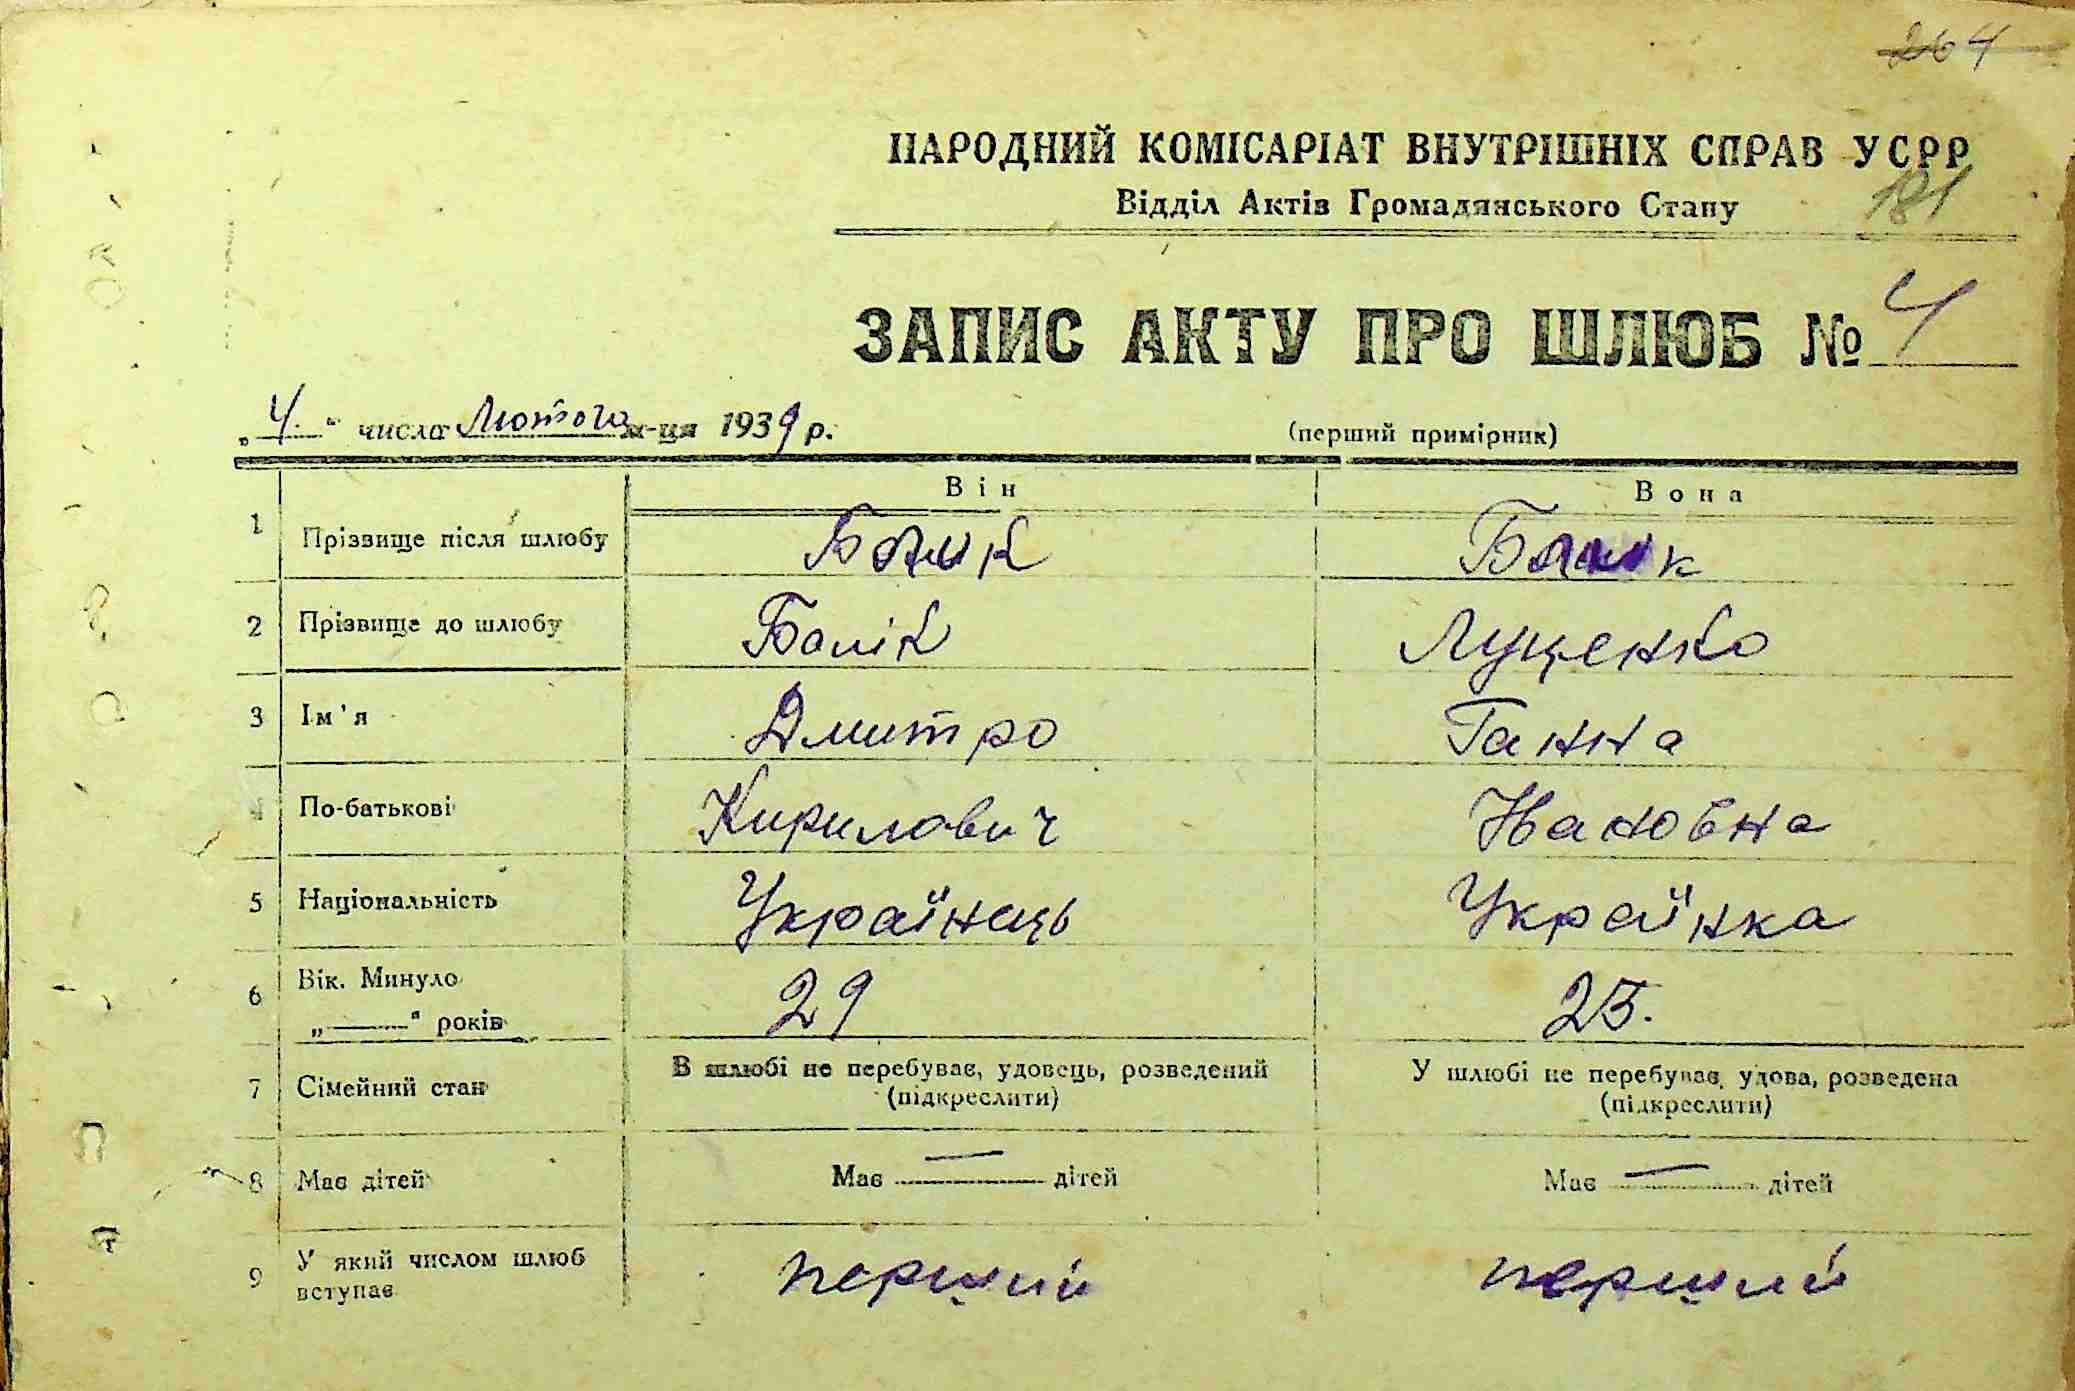 264
НАРОДНИЙ КОМІСАРІАТ ВНУТРІШНІХ СПРАВ УСРР
Відділ Актів Громадянського Стану 181
ЗАПИС АКТУ ПРО ШЛЮБ № 4
„4.“ числа Лютого м-ця 1939 р. (перший примірник)
Він Вона
1 Прізвище після шлюбу Балик Балик
2 Прізвище до шлюбу Балік Луценко
3 Ім'я Дмитро Ганна
4 По-батькові Кирилович Ивановна
5 Національність Українець Українка
6 Вік. Минуло 29 25.
„——“ років
7 Сімейний стан В шлюбі не перебуває, удовець, розведений У шлюбі не перебуває, удова, розведена
(підкреслити) (підкреслити)
8 Має дітей Має — дітей Має — дітей
9 У який числом шлюб вступає перший перший